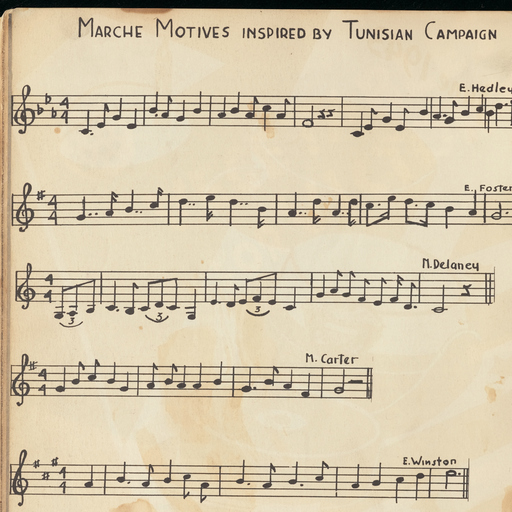 Marche Motives inspired by Tunisian Campaign
E. Hedley
4 4
E. Foster
4 4
M. Delaney
4 4
3 3 3
M. Carter
4 4
E. Winston
4 4